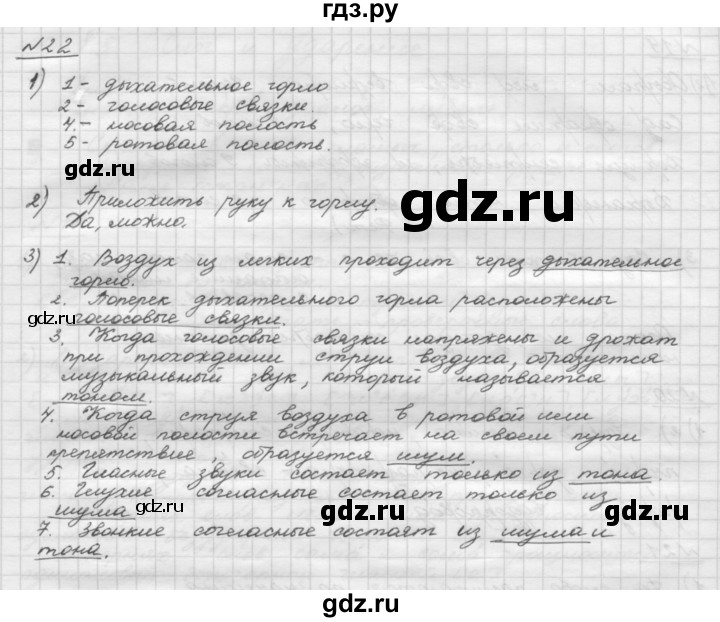 гдз.ру
№22
1) 1- дыхательное горло
2- голосовые связки.
4.- носовая полость
5- ротовая полость.
2) Приложить руку к горлу.
Да, можно.
gdz.ru
gdz.ru
3) 1. Воздух из легких проходит через дыхательное
горло.
2. Поперек дыхательного горла расположены
голосовые связки.
gdz.ru
3. Когда голосовые связки напряжены и дрожат
при прохождении струи воздуха, образуется
музыкальный звук, который называется
тоном.
gdz.ru
4. Когда струя воздуха в ротовой или
носовой полости встречает на своем пути
препятствие, образуется шум.
5. Гласные звуки состоят только из тона.
6. Глухие согласные состоят только из
шума
gdz.ru
gdz.ru
7. Звонкие согласные состоят из шума и
тона.
gdz.ru